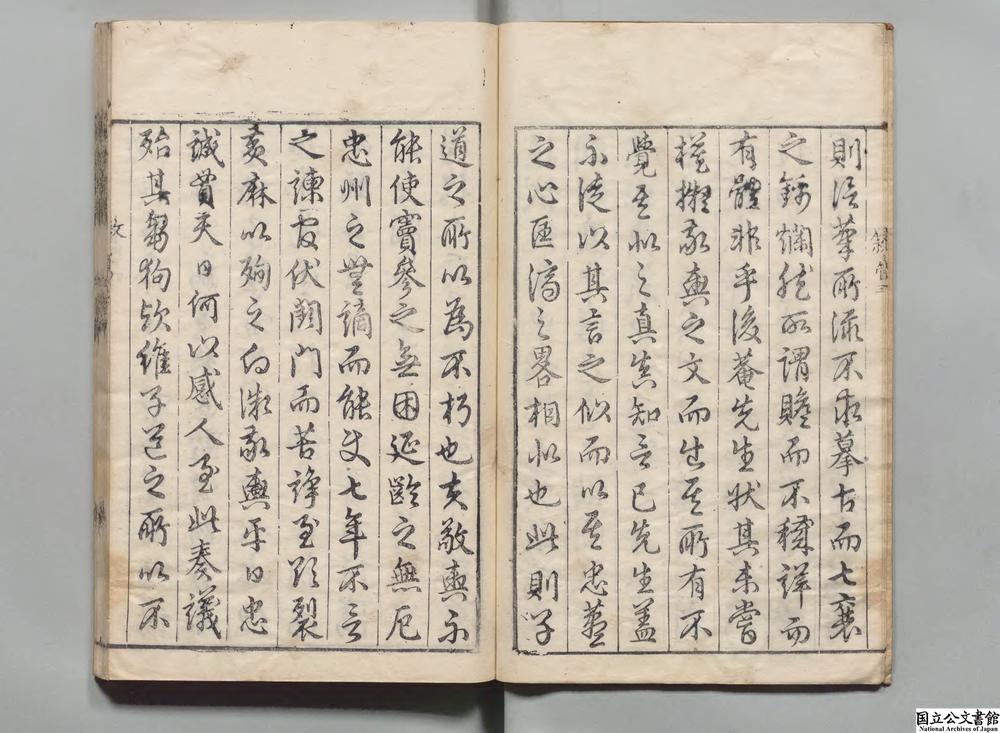 則信筆所不求摹古而七襄
之錦爛然所謂贍而不穢詳而
有體非乎後菴先生狀其未嘗
模擬敬輿之文而出其所有不
覺其似之真真知言已先生蓋
不徒以其言之似而以其忠藎
之心匡濟之畧相似也此則子
道之所以為不朽也夫敬輿不
能使竇參之無困延齡之無厄
忠州之無謫而能使七年不言
之諫官伏閤門而苦諍至欲裂
黃麻以殉之向微敬輿平日忠
誠貫天日何以感人至此奏議
殆其芻狗欤維子道之所以不
国立公文書館
National Archives of Japan